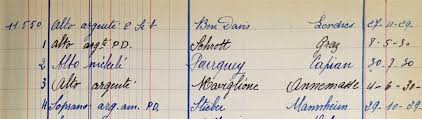 11.550 Alto argenté E 1e t Ben Davis Londres 27-11-29.
1 alto argté P.D. Schrott Graz 8-5-30
2 Alto nickelé Capian 30.7.30
3 Alto argenté Maviglione Annemasse 11-6-30
4 Soprano arg. am. P.D. Stieber Mannheim 29.10-29.